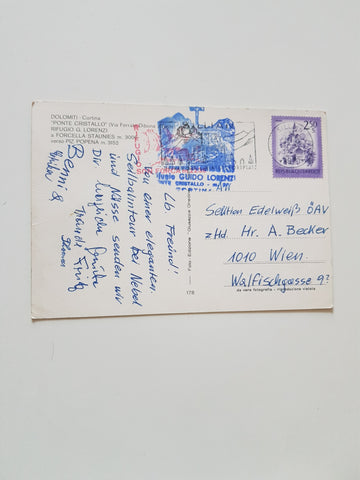 DOLOMITI - Cortina
"PONTE CRISTALLO" (Via Ferrata Dibona)
RIFUGIO G. LORENZI
a FORCELLA STAUNIES m. 3009
verso PIZ POPENA m. 3153
GUIDO LORENZI
PONTE CRISTALLO - m.
CORTINA
2.50
REPUBLIK ÖSTERREICH
Lb. Freind!
Von einer eleganten
Seilbahntour bei Nebel
und Nässe senden wir
Dir herzliche Grüße
Fritz
Sektion Edelweiß ÖAV
z Hd. Hr. A. Becker
1010 Wien.
Walfischgasse 9?
178
da vera fotografia - riproduzione vietata